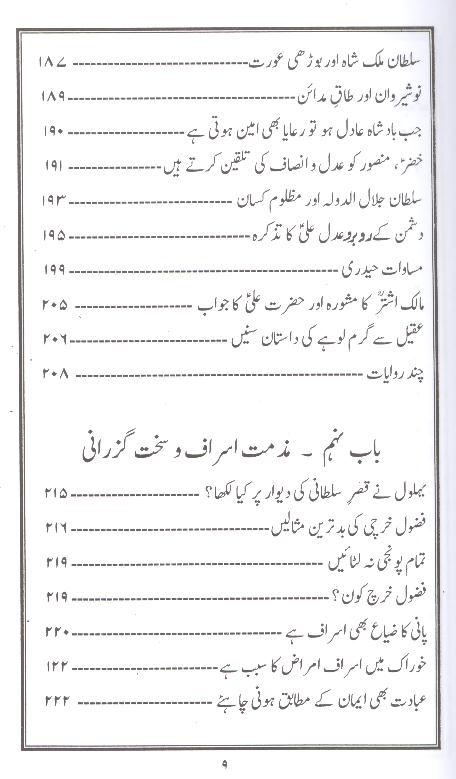 سلطان ملک شاہ اور بوڑھی عورت ---------------------------- ۱۸۷
نوشیروان اور طاقِ مدائن ---------------------------- ۱۸۹
جب بادشاہ عادل ہو تو رعایا بھی امین ہوتی ہے ---------------- ۱۹۰
خضرؑ، منصور کو عدل و انصاف کی تلقین کرتے ہیں --------------- ۱۹۱
سلطان جلال الدولہ اور مظلوم کسان --------------------- ۱۹۳
دشمن کے روبرو عدل علیؑ کا تذکرہ ---------------------- ۱۹۵
مساوات حیدری -------------------------------- ۱۹۹
مالک اشترؒ کا مشورہ اور حضرت علیؑ کا جواب --------------- ۲۰۵
عقیل سے گرم لوہے کی داستان سنیں -------------------- ۲۰۶
چند روایات ----------------------------------- ۲۰۸
باب نہم ۔ مذمت اسراف و سخت گزرانی
بہلول نے قصرِ سلطانی کی دیوار پر کیا لکھا؟ ---------------- ۲۱۵
فضول خرچی کی بدترین مثالیں ------------------------ ۲۱۶
تمام پونجی نہ لٹائیں ------------------------------ ۲۱۹
فضول خرچ کون؟ -------------------------------- ۲۱۹
پانی کا ضیاع بھی اسراف ہے -------------------------- ۲۲۰
خوراک میں اسراف امراض کا سبب ہے ------------------- ۱۲۲
عبادت بھی ایمان کے مطابق ہونی چاہئے ----------------- ۲۲۲
۹